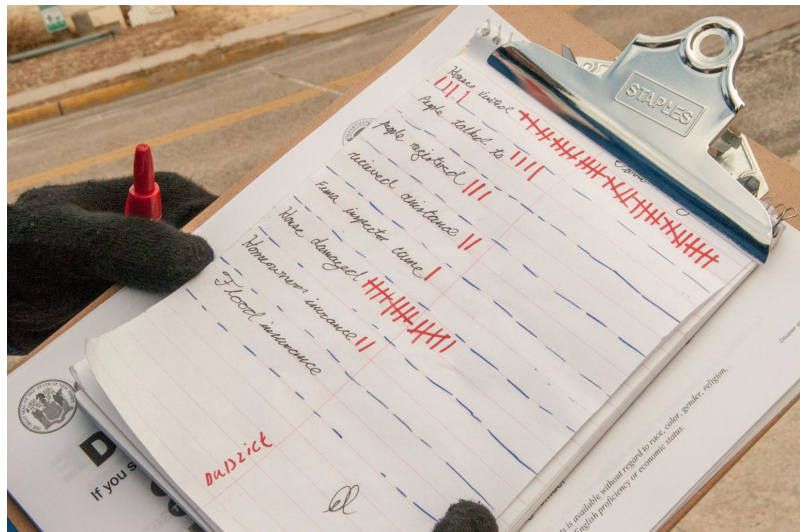 STAPLES
Houses visited
People talked to
people registered
recieved assistance
Fema inspector came
House damaged
Homeowners insurance
Flood insurance
DUBZICT
If you s
ts is available without regard to race, color, gender, religion,
English proficiency or economic status.
Disaster